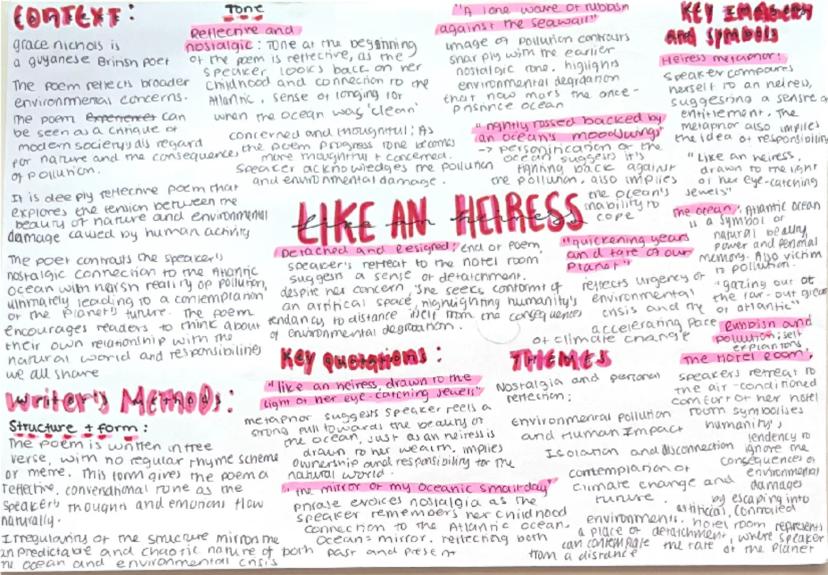 CONTEXT:
grace nichols is
a guyanese British poet
The poem reflects broader
environmental concerns.
The poem can
be seen as a critique of
modern society's disregard
for nature and the consequences
of pollution.
It is deeply reflective poem that
explores the tension between the
beauty of nature and environmental
damage caused by human activity
The poem contrasts the speaker's
nostalgic connection to the Atlantic
ocean with harsh reality of pollution,
ultimately leading to a contemplation
of the planet's future. The poem
encourages readers to think about
their own relationship with the
natural world and responsibilities
we all share
Writer's Methods:
Structure + form:
The poem is written in free
verse, with no regular rhyme scheme
or metre. This form gives the poem a
reflective, conversational tone as the
speaker's thoughts and emotions flow
naturally.
Irregularity of the structure mirrors the
unpredictable and chaotic nature of both
the ocean and environmental crisis
Tone
Reflective and
nostalgic: Tone at the beginning
of the poem is reflective, as the
speaker looks back on her
childhood and connection to the
Atlantic, sense of longing for
when the ocean was 'clean'
concerned and thoughtful; As
the poem progress tone becomes
more thoughtful + concerned.
Speaker acknowledges the pollution
and environmental damage.
"A lone wave of rubbish
against the seawall"
image of pollution contrasts
sharply with the earlier
nostalgic tone, highlights
environmental degradation
that now mars the once-
pristine ocean
"rightly tossed backed by
an ocean's moodswings"
→ personification of the
ocean suggests it's
fighting back against
the pollution, also implies
the ocean's
inability to
cope
LIKE AN HEIRESS
like an heiress
Detached and Resigned; end of poem,
speaker's retreat to the hotel room
suggest a sense of detatchment.
despite her concern, she seeks comfort of
an artifical space, highlighting humanity's
tendancy to distance itself from the consequences
of environmental degradation.
"quickening years
and fate of our
Planet"
reflects urgency of
environmental
crisis and the
accelerating pace
of climate change
Key Quotations:
"like an heiress, drawn to the
light of her eye-catching jewels"
metaphor suggests speaker feels a
strong pull towards the beauty of
the ocean, just as an heiress is
drawn to her wealth, implies
ownership and responsibility for the
natural world.
"the mirror of my oceanic small-days"
phrase evoices nostalgia as the
speaker remembers her childhood
connection to the Atlantic ocean.
ocean = mirror, reflecting both
past and present
THEMES
Nostalgia and personal
reflection;
environmental pollution
and Human Impact
Isolation and disconnection
contemplation of
climate change and
future.
environments. hotel room represents
a place of detatchment, where speaker
can contemplate the fate of the planet
from a distance
KEY IMAGERY
and SYMBOLS
Heiress metaphor;
speaker compares
herself to an heiress,
suggesting a sense of
entitlement. The
metaphor also implies
the idea of responsibility
"Like an heiress,
drawn to the light
of her eye-catching
jewels"
The ocean; Atlantic ocean
is a symbol of
natural beauty
power and personal
memory. Also victim
to pollution.
"gazing out at
the far-out gleam
of atlantic"
Rubbish and
pollution; self
explanitory
The Hotel Room;
speakers retreat to
the air-conditioned
comfort of her hotel
room symbolises
humanity's
tendency to
ignore the
consequences of
environmental
damages
by escaping into
artifical, controlled